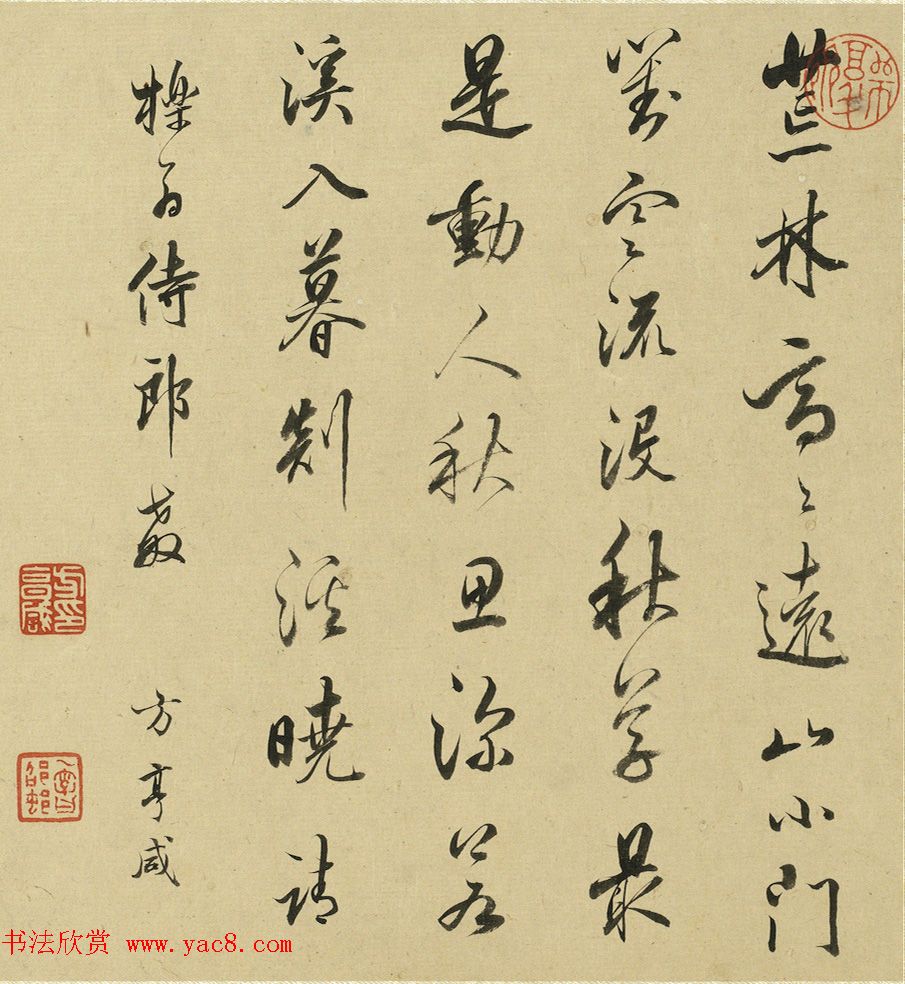 荒林高〻遠山小門
對空流沒秋草最
是動人秋思深若
溪入暮剡溪曉請
櫟翁侍郎教 方亨咸
書法欣赏 www.yac8.com